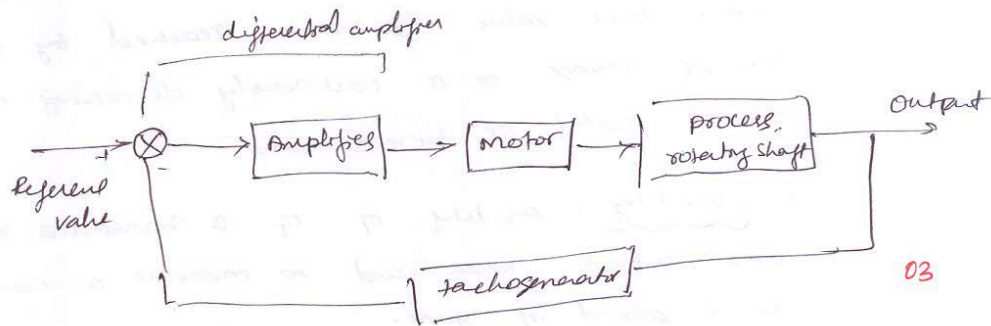 differential amplifier
Output
+
-
Amplifier
Motor
process,
rotating shaft
Reference
value
tachogenerator
03